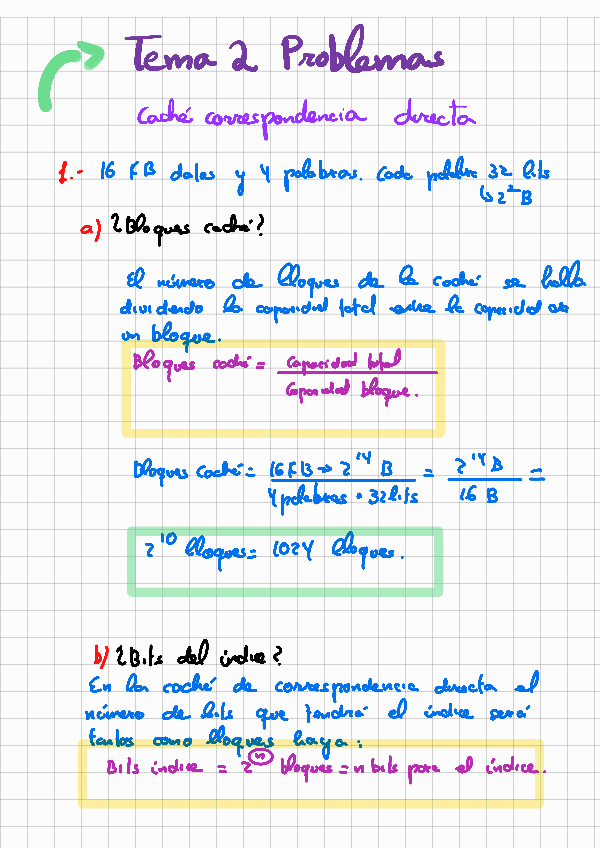 Tema 2 Problemas
Caché correspondencia directa
1.- 16 KB datos y 4 palabras. Cada palabra 32 bits
↳ 2² B
a) ¿Bloques caché?
El número de bloques de la caché se halla
dividendo la capacidad total entre la capacidad de
un bloque.
Bloques caché = Capacidad total
Capacidad bloque.
Bloques Caché = 16 KB → 2¹⁴ B = 2¹⁴ B =
4 palabras · 32 bits 16 B
2¹⁰ bloques = 1024 bloques.
b) ¿Bits del índice?
En la caché de correspondencia directa el
número de bits que tendrá el índice será
tantos como bloques haya:
Bits índice = 2ⁿ bloques = n bits para el índice.